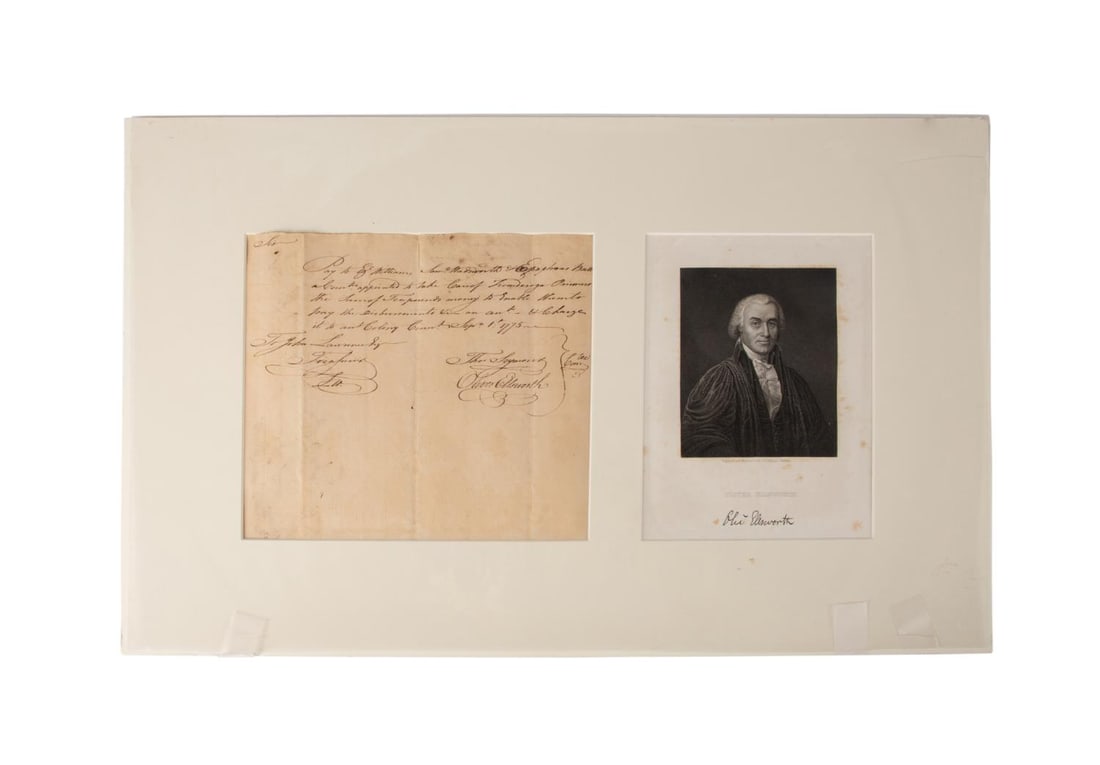 Sir
Pay to Ez Williams, Saml Wadsworth & Epaphras Bull
a Comtt appointed to take Care of Ticonderoga
the Sum of pounds money to Enable them to
pay the disbursements &c on an acct & Charge
it to acct Colony Connt Sepr 1st 1775
To John Lawrence Esqr
Treasurer
Thos Seymour
Oliver Ellsworth
Com
OLIVER ELLSWORTH
Oliv Ellsworth